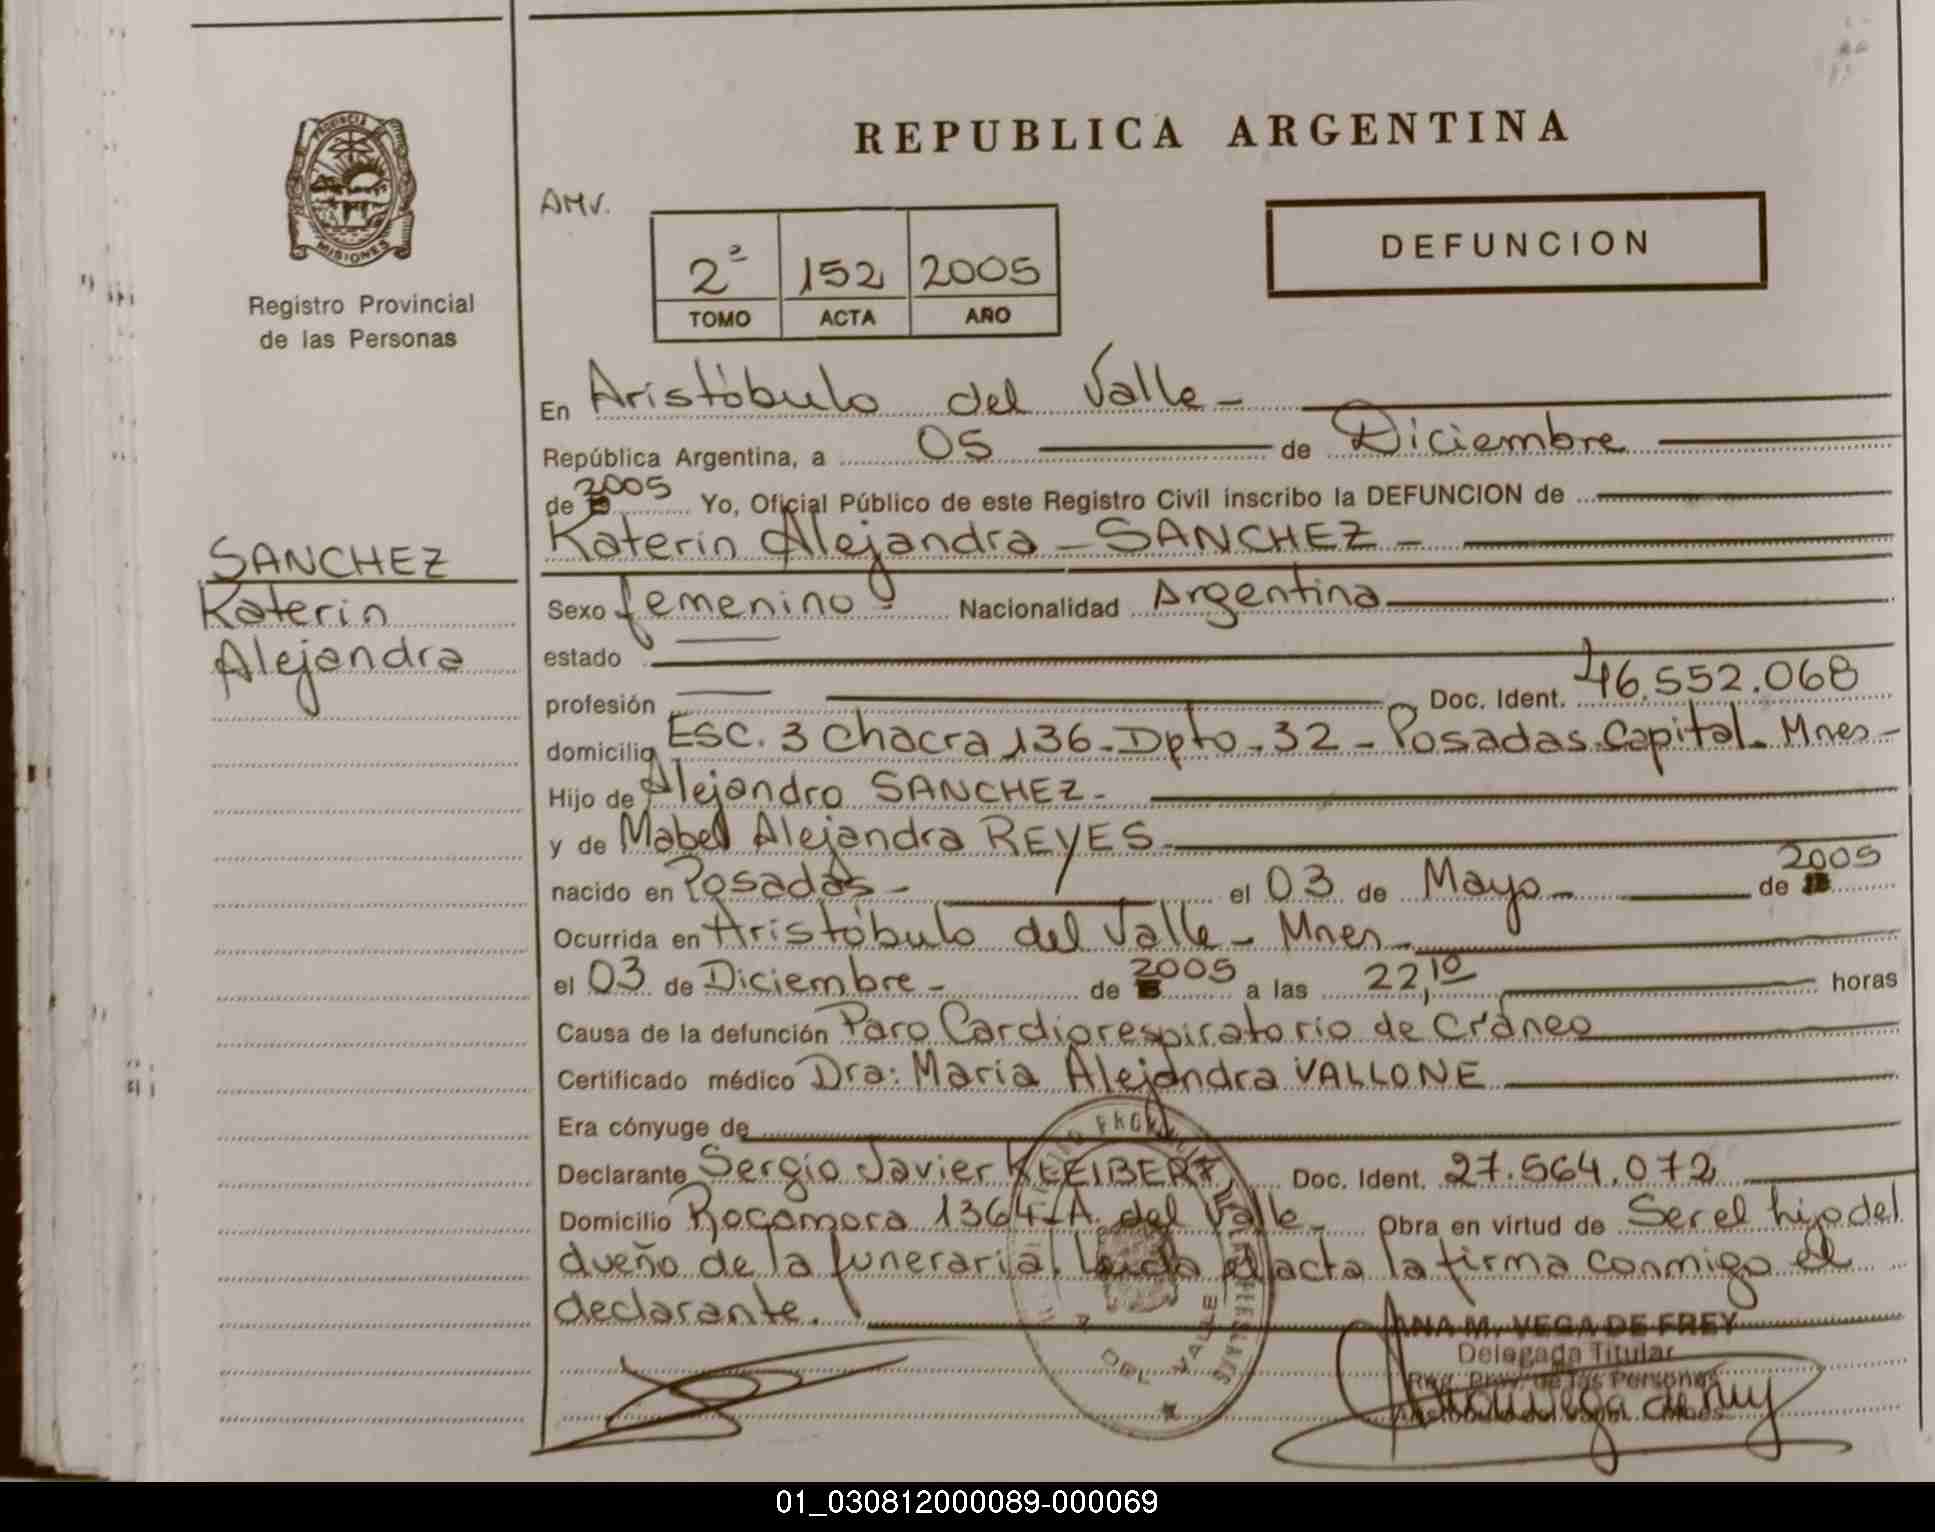 REPUBLICA ARGENTINA
PROVINCIA DE
MISIONES
Registro Provincial
de las Personas
AMV.
2ª 152 2005
TOMO ACTA AÑO
DEFUNCION
En Aristóbulo del Valle-
República Argentina, a 05 de Diciembre
de 2005 Yo, Oficial Público de este Registro Civil inscribo la DEFUNCION de
Katerin Alejandra - SANCHEZ -
SANCHEZ
Katerin
Alejandra
Sexo femenino - Nacionalidad Argentina
estado
profesión Doc. Ident. 46.552.068
domicilio Esc. 3 Chacra 136 - Dpto - 32 - Posadas Capital - Mnes -
Hijo de Alejandro SANCHEZ -
y de Mabel Alejandra REYES
nacido en Posadas - el 03 de Mayo - de 2005
Ocurrida en Aristóbulo del Valle - Mnes -
el 03 de Diciembre - de 2005 a las 22,10 horas
Causa de la defunción Paro Cardiorespiratorio de Cráneo
Certificado médico Dra: María Alejandra VALLONE
Era cónyuge de
Declarante Sergio Javier KLEIBERT Doc. Ident. 27.564.072
Domicilio Rocamora 1364 - A. del Valle - Obra en virtud de Ser el hijo del
dueño de la funeraria. Leída el acta la firma conmigo el
declarante.
DEL VALLE
ANA M. VEGA DE FREY
Delegada Titular
Reg. Prov. de las Personas
01_030812000089-000069